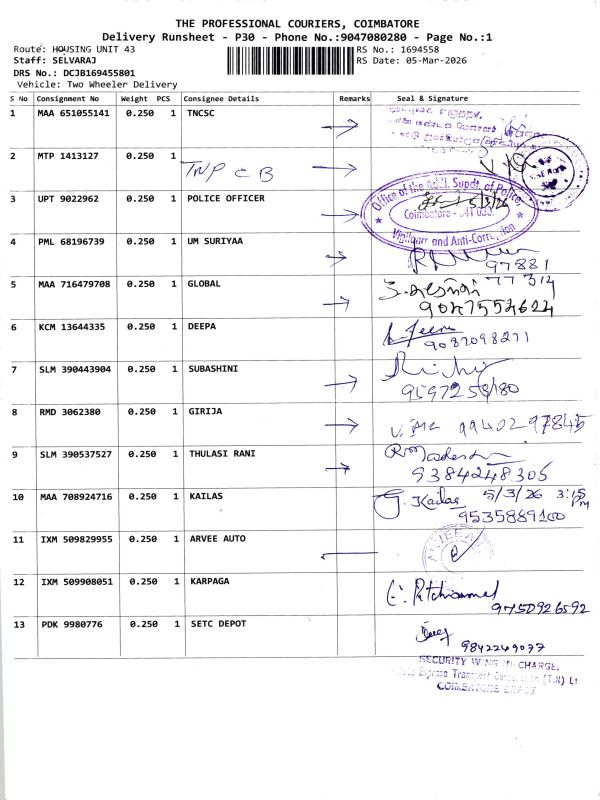 THE PROFESSIONAL COURIERS, COIMBATORE
Delivery Runsheet - P30 - Phone No.:9047080280 - Page No.:1
Route: HOUSING UNIT 43
RS No.: 1694558
Staff: SELVARAJ
RS Date: 05-Mar-2026
DRS No.: DCJB169455801
Vehicle: Two Wheeler Delivery
S No Consignment No Weight PCS Consignee Details Remarks Seal & Signature
1 MAA 651055141 0.250 1 TNCSC
2 MTP 1413127 0.250 1 TNPCB
3 UPT 9022962 0.250 1 POLICE OFFICER
Office of the Addl. Supdt. of Police,
5/3/26
Coimbatore
Vigilance and Anti-Corruption
4 PML 68196739 0.250 1 UM SURIYAA
97881
77314
5 MAA 716479708 0.250 1 GLOBAL
9047554624
6 KCM 13644335 0.250 1 DEEPA
9087098271
7 SLM 390443904 0.250 1 SUBASHINI
8 RMD 3062380 0.250 1 GIRIJA
9940297845
9 SLM 390537527 0.250 1 THULASI RANI
9384248305
10 MAA 708924716 0.250 1 KAILAS
G. Kailas 5/3/26 3:15 Pm
9535889100
11 IXM 509829955 0.250 1 ARVEE AUTO
12 IXM 509908051 0.250 1 KARPAGA
9750926592
13 PDK 9980776 0.250 1 SETC DEPOT
9842249077
SECURITY WING IN-CHARGE,
Express Transport Corporation (T.N) Lt
COIMBATORE DEPOT